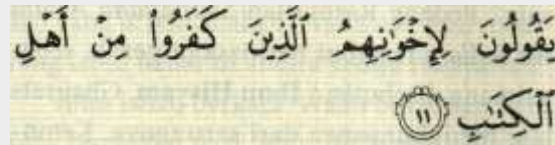 يَقُولُونَ لِإِخْوَٰنِهِمُ ٱلَّذِينَ كَفَرُوا۟ مِنْ أَهْلِ
ٱلْكِتَـٰبِ ١١